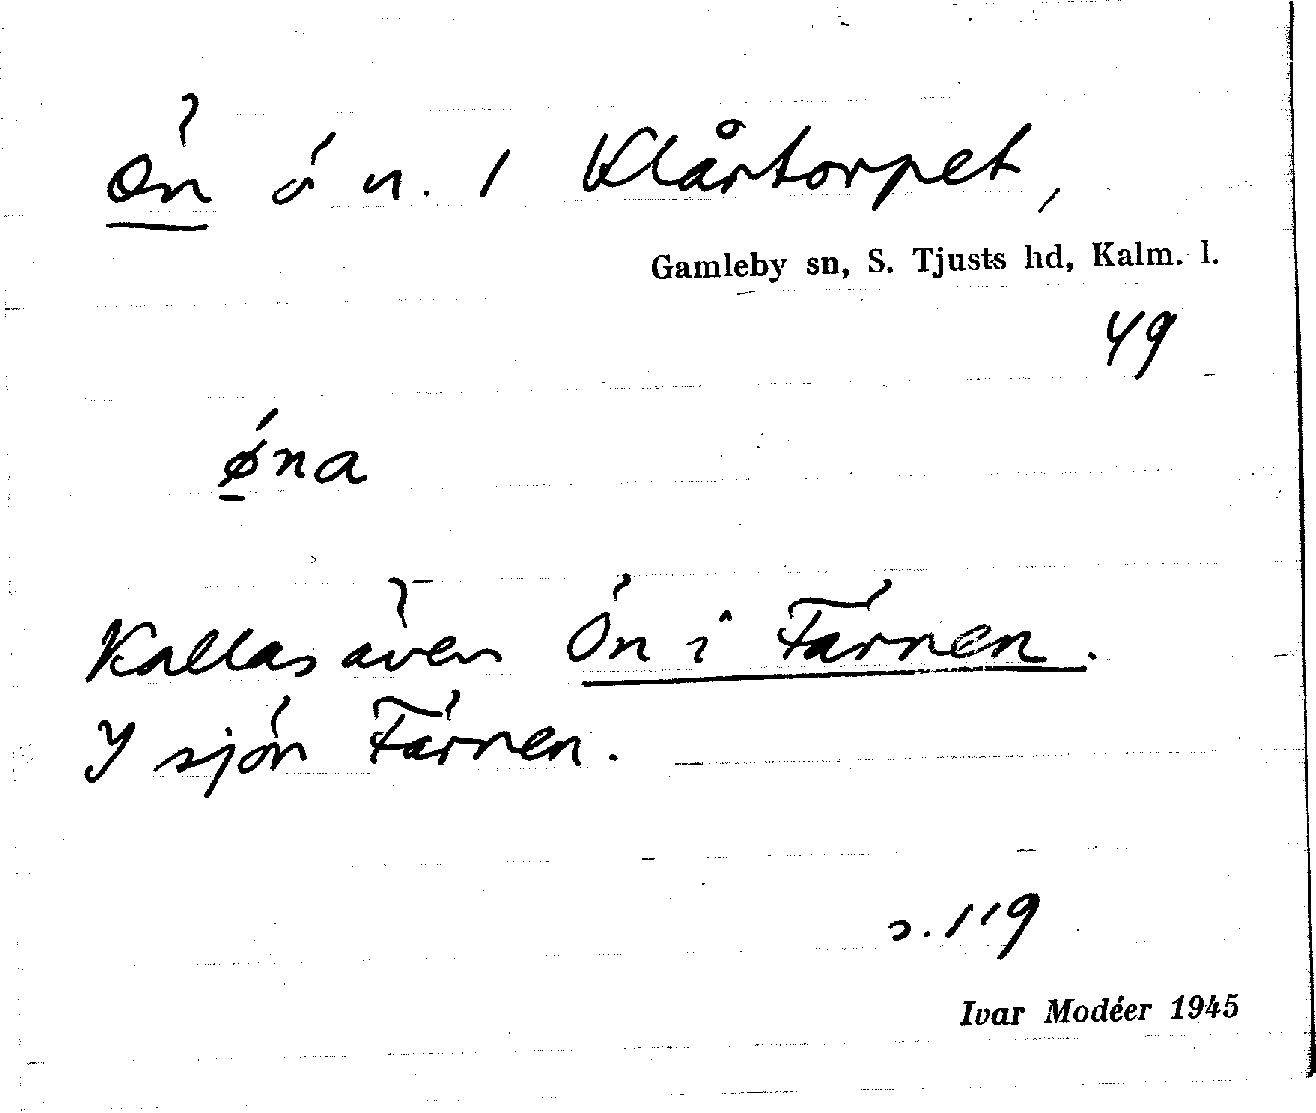 Ön ö n. 1 Klårtorpet,
Gamleby sn, S. Tjusts hd, Kalm. l.
49
ǿna
Kallas även Ön i Färnen.
I sjön Färnen.
s. 119
Ivar Modéer 1945